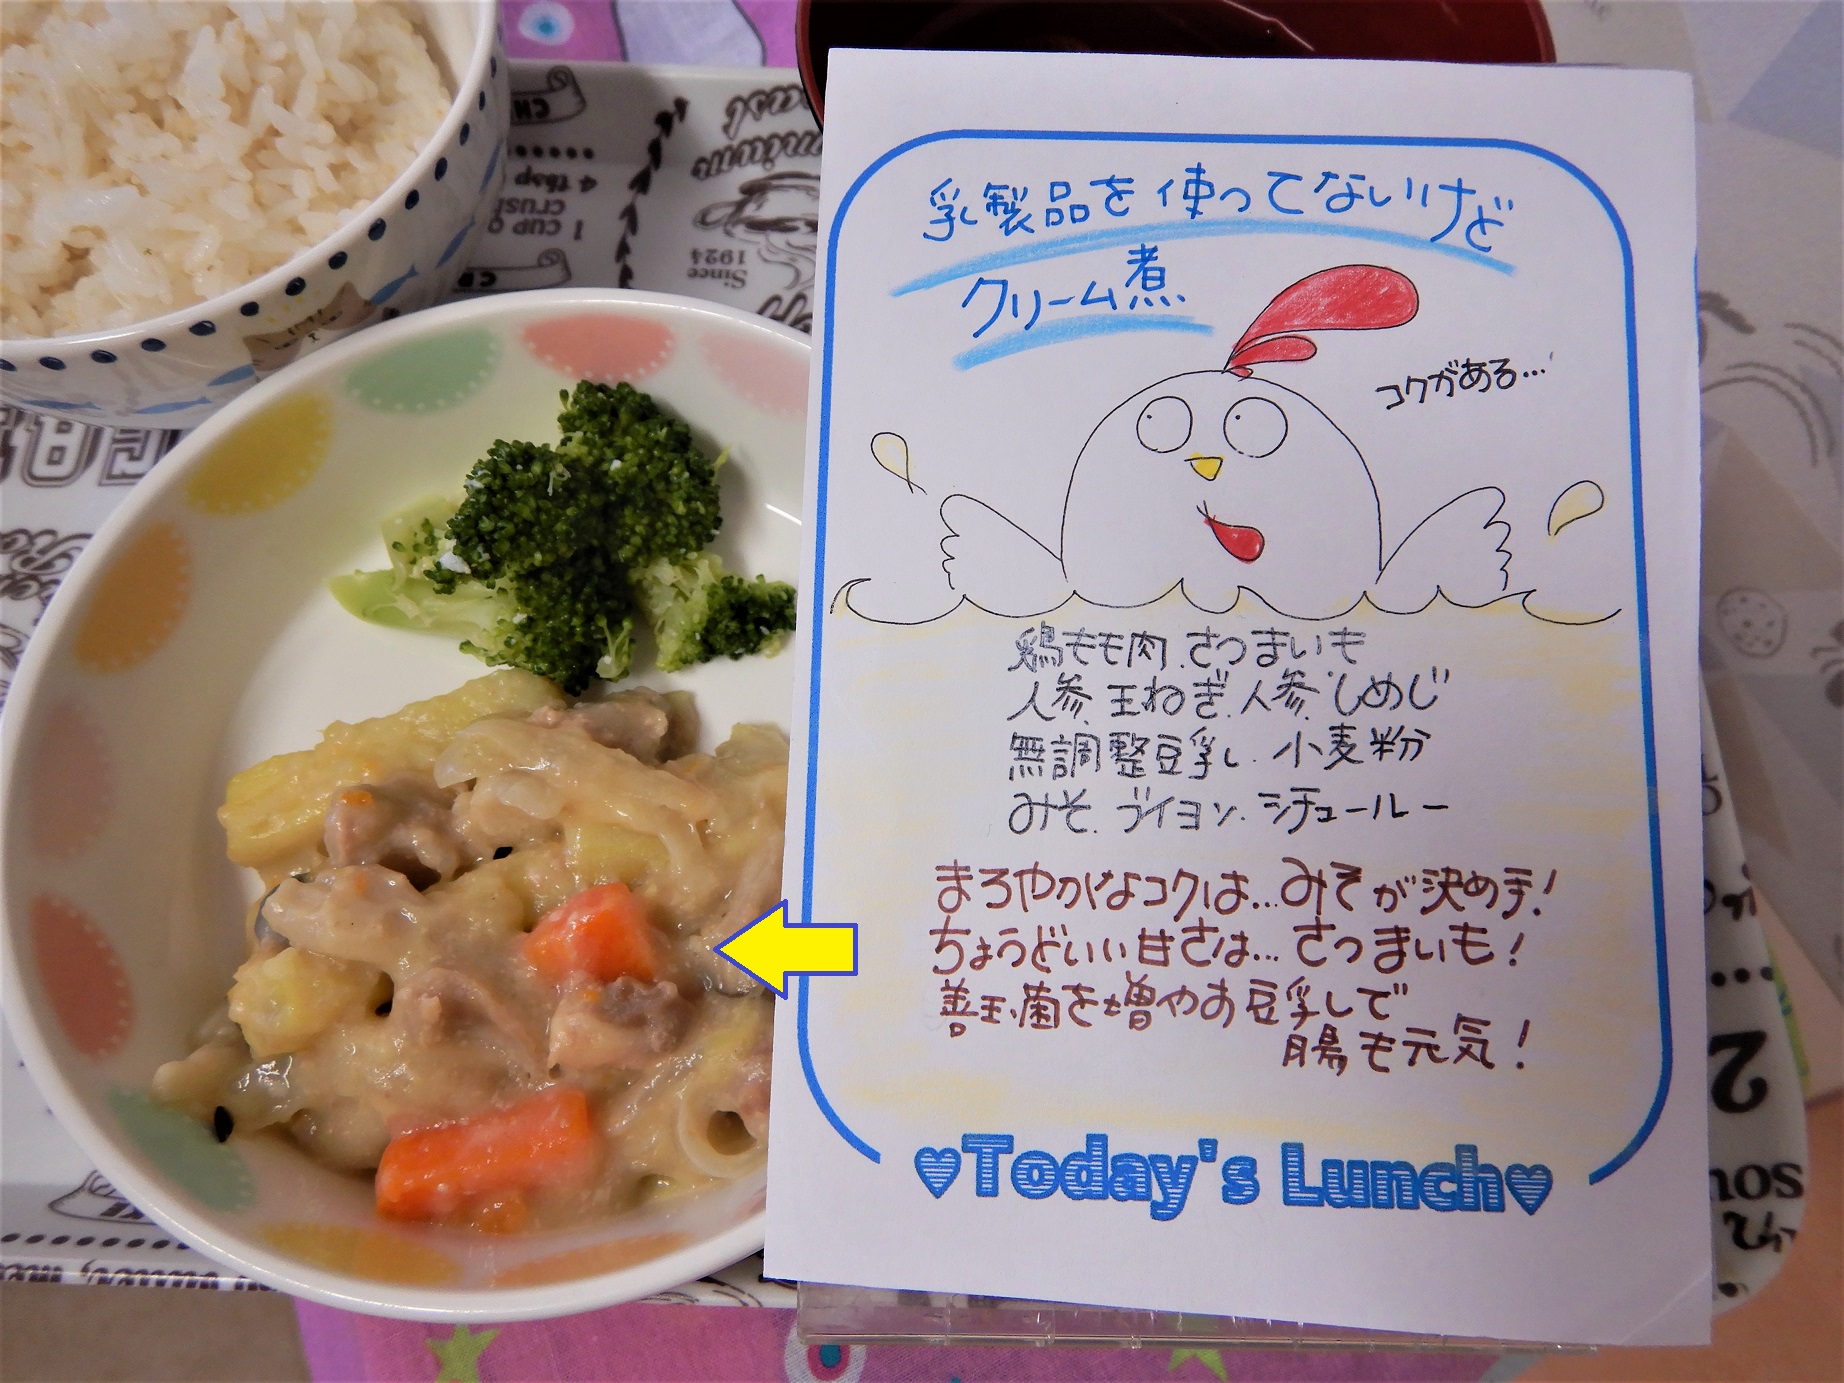 乳製品を使ってないけど
クリーム煮
コクがある…
鶏もも肉.さつまいも
人参.玉ねぎ.人参.しめじ
無調整豆乳.小麦粉
みそ.ブイヨン.シチュールー
まろやかなコクは…みそが決め手!
ちょうどいい甘さは…さつまいも!
善玉菌を増やす豆乳で
腸も元気!
♥Today's Lunch♥
4 tbsp
1 CUP
Since
1924
2